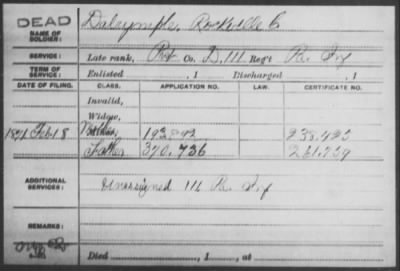 DEAD
NAME OF SOLDIER: Dalrymple, Rockville C.
SERVICE: Late rank, Pvt Co. D, 111 Reg't Pa. Inf
TERM OF SERVICE: Enlisted , 1 Discharged , 1
DATE OF FILING. CLASS. APPLICATION NO. LAW. CERTIFICATE NO.
Invalid,
Widow,
1871 Feb 18 Mother, 193.892 238.425
Father 370.736 261.759
ADDITIONAL SERVICES: Unassigned 111 Pa. Inf
REMARKS:
Died , 1 , at